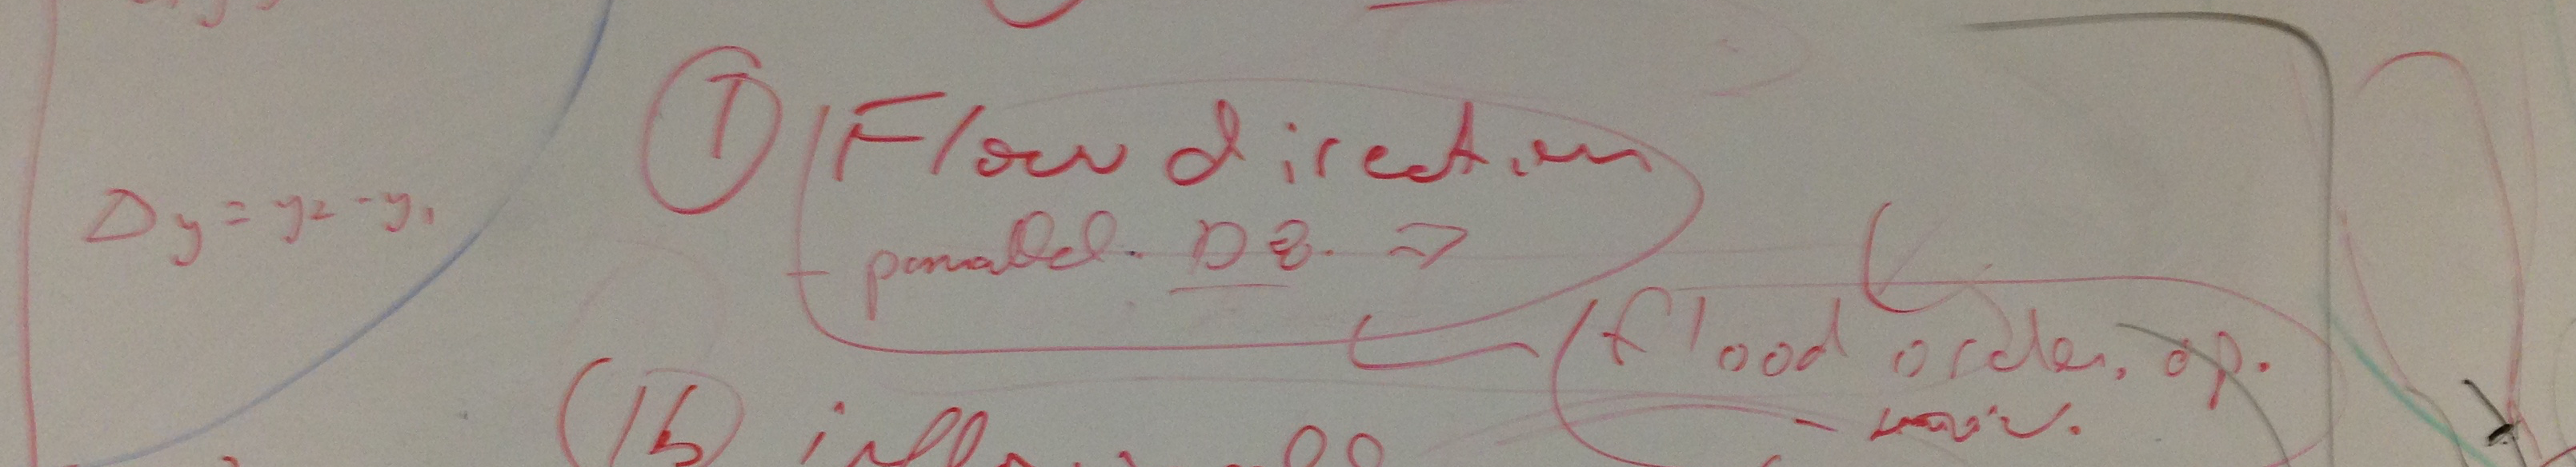 Δy = y2 - y1
① Flow direction
- parallel. DE. ⇒
flood order, op.
1b